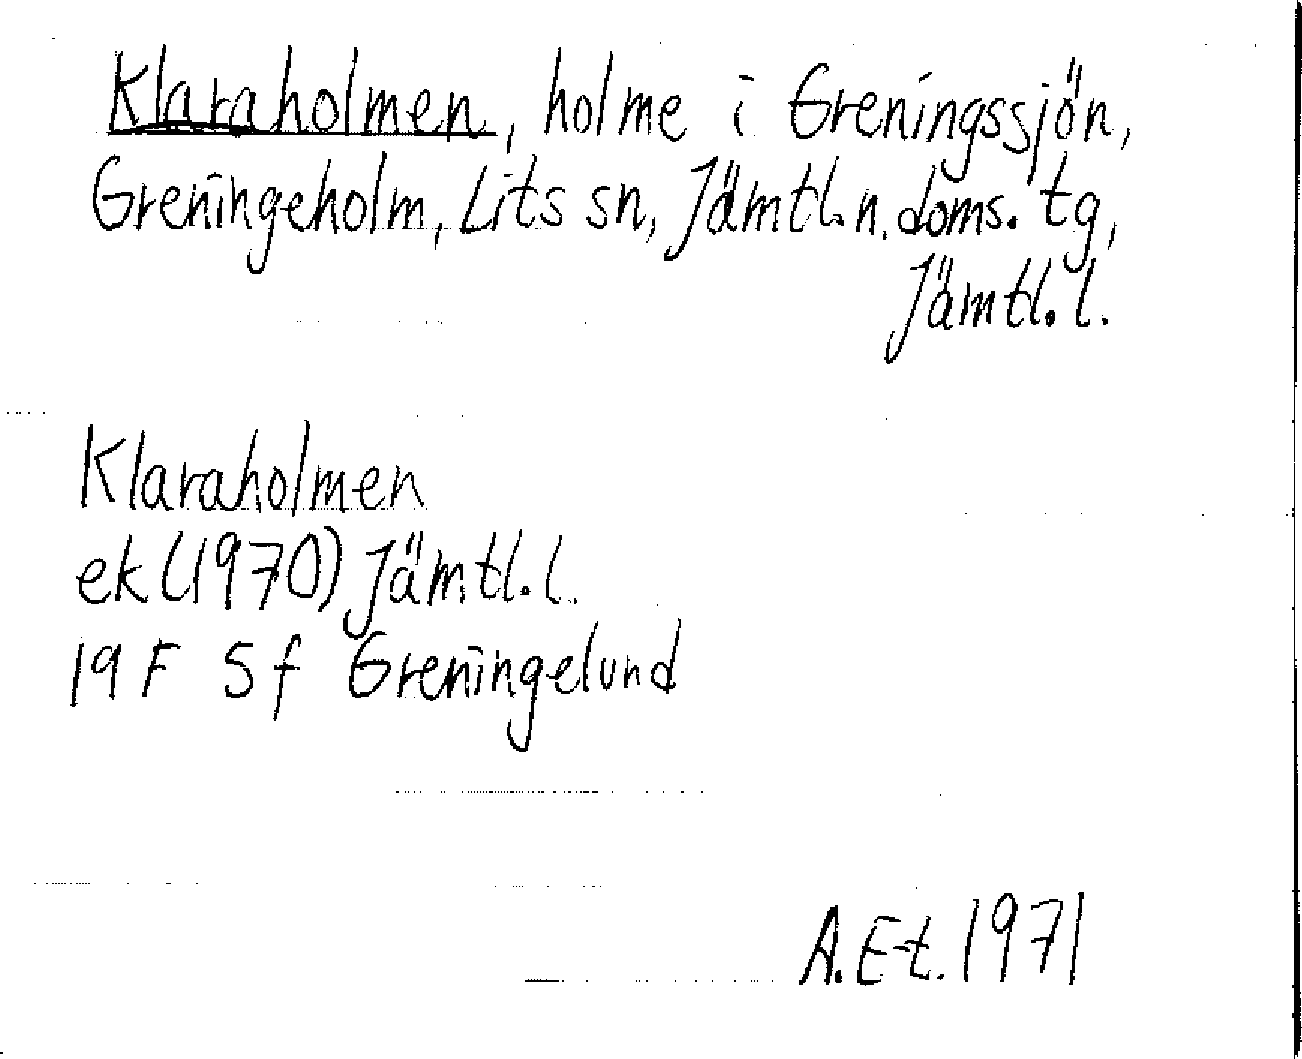 Klaraholmen, holme i Greningssjön,
Greningeholm, Lits sn, Jämtl. n. doms. tg,
Jämtl. l.
Klaraholmen
ek (1970) Jämtl. l.
19 F 5 f Greningelund
A. E-t. 1971